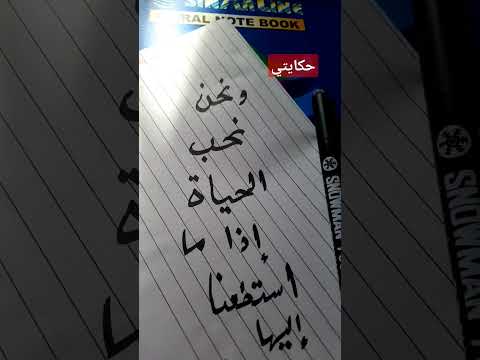 STREAMLINE
SPIRAL NOTE BOOK
حكايتي
ونحن
نحب
الحياة
إذا ما
أستطعنا
إليها
SNOWMAN
SNOWMAN